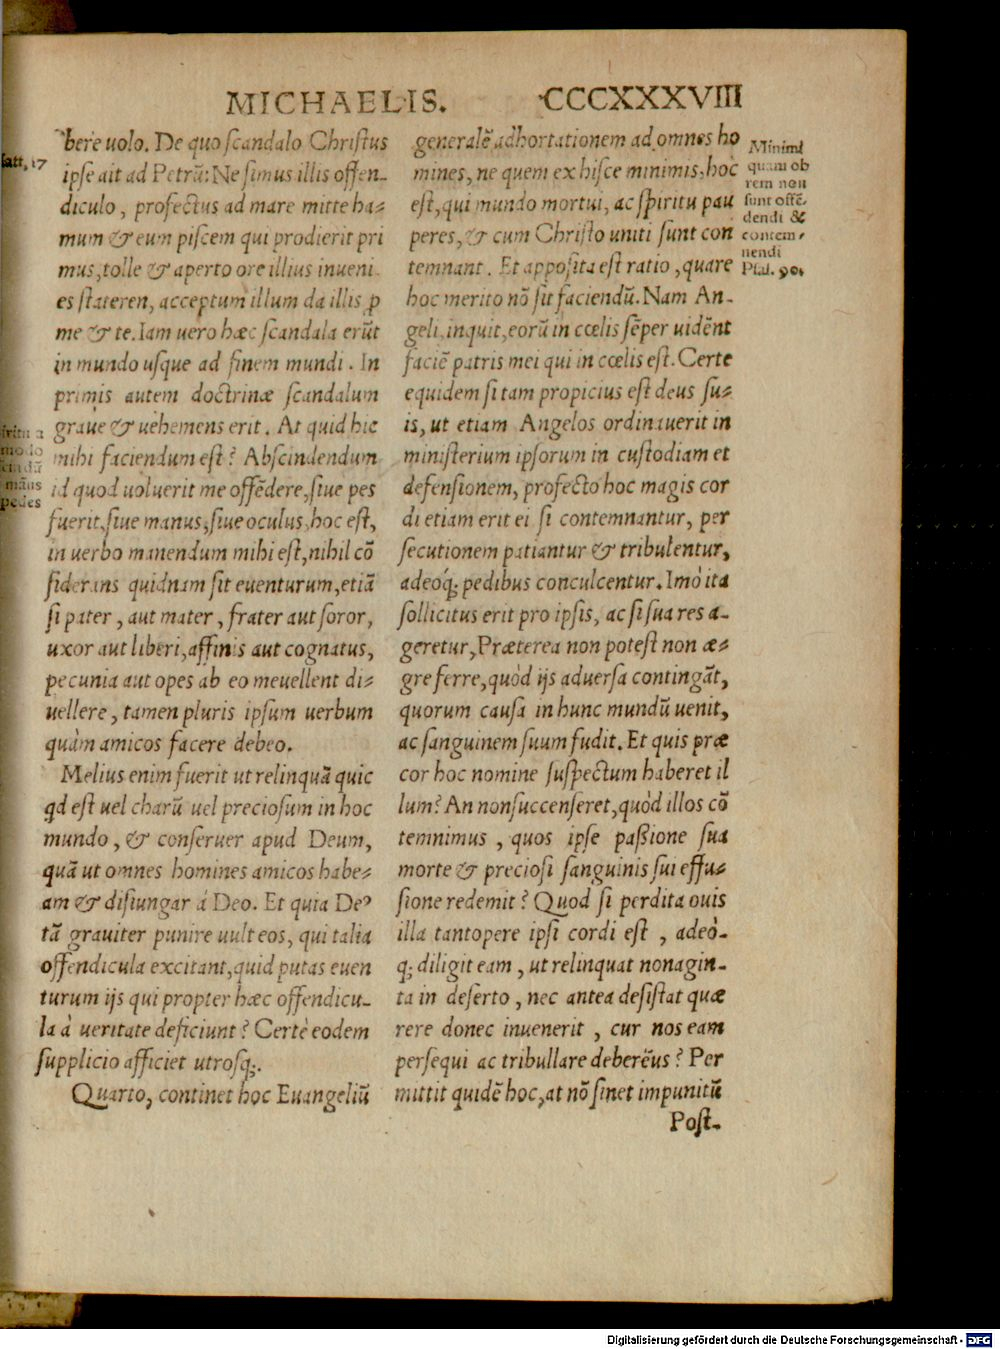 MICHAELIS. CCCXXXVIII
bere uolo. De quo ſcandalo Chriſtus
ipſe ait ad Petrū: Ne ſimus illis offen-
diculo, profectus ad mare mitte ha-
mum & eum piſcem qui prodierit pri
mus, tolle & aperto ore illius inueni
es ſtateren, acceptum illum da illis ꝓ
me & te. Iam uero hæc ſcandala erūt
in mundo uſque ad finem mundi. In
primis autem doctrinæ ſcandalum
graue & uehemens erit. At quid hic
mihi faciendum eſt? Abſcindendum
id quod uoluerit me offēdere, ſiue pes
fuerit, ſiue manus, ſiue oculus, hoc eſt,
in uerbo manendum mihi eſt, nihil cō
ſiderans quidnam ſit euenturum, etiā
ſi pater, aut mater, frater aut ſoror,
uxor aut liberi, affinis aut cognatus,
pecunia aut opes ab eo me uellent di-
uellere, tamen pluris ipſum uerbum
quàm amicos facere debeo.
Melius enim fuerit ut relinquā quic
qd eſt uel charū uel precioſum in hoc
mundo, & conſeruer apud Deum,
quā ut omnes homines amicos habe-
am & diſiungar á Deo. Et quia Deꝰ
tā grauiter punire uult eos, qui talia
offendicula excitant, quid putas euen
turum ijs qui propter hæc offendicu-
la à ueritate deficiunt? Certè eodem
ſupplicio afficiet utroſq;.
Quarto, continet hoc Euangeliū
att, 17
mo do
mãus
pedes
generalē adhortationem ad omnes ho
mines, ne quem ex hiſce minimis, hoc
eſt, qui mundo mortui, ac ſpiritu pau
peres, & cum Chriſto uniti ſunt con
temnant. Et appoſita eſt ratio, quare
hoc merito nō ſit faciendū. Nam An-
geli, inquit, eorū in cœlis ſēper uidēnt
faciē patris mei qui in cœlis eſt. Certe
equidem ſi tam propicius eſt deus ſu-
is, ut etiam Angelos ordinauerit in
miniſterium ipſorum in cuſtodiam et
defenſionem, profecto hoc magis cor
di etiam erit ei ſi contemnantur, per
ſecutionem patiantur & tribulentur,
adeoq́; pedibus conculcentur. Imò ita
ſollicitus erit pro ipſis, ac ſi ſua res a-
geretur, Præterea non poteſt non æ-
gre ferre, quòd ijs aduerſa contingāt,
quorum cauſa in hunc mundū uenit,
ac ſanguinem ſuum fudit. Et quis præ
cor hoc nomine ſuſpectum haberet il
lum? An non ſuccenſeret, quòd illos cō
temnimus, quos ipſe paßione ſua
morte & precioſi ſanguinis ſui effu-
ſione redemit? Quod ſi perdita ouis
illa tantopere ipſi cordi eſt, adeò-
q; diligit eam, ut relinquat nonagin-
ta in deſerto, nec antea deſiſtat quæ
rere donec inuenerit, cur nos eam
perſequi ac tribullare deberēus? Per
mittit quidē hoc, at nō ſinet impunitū
Poſt-
Minimi
quam ob
rem non
ſunt offē-
dendi &
contem-
nendi
Pſal. 90.
Digitalisierung gefördert durch die Deutsche Forschungsgemeinschaft - DFG